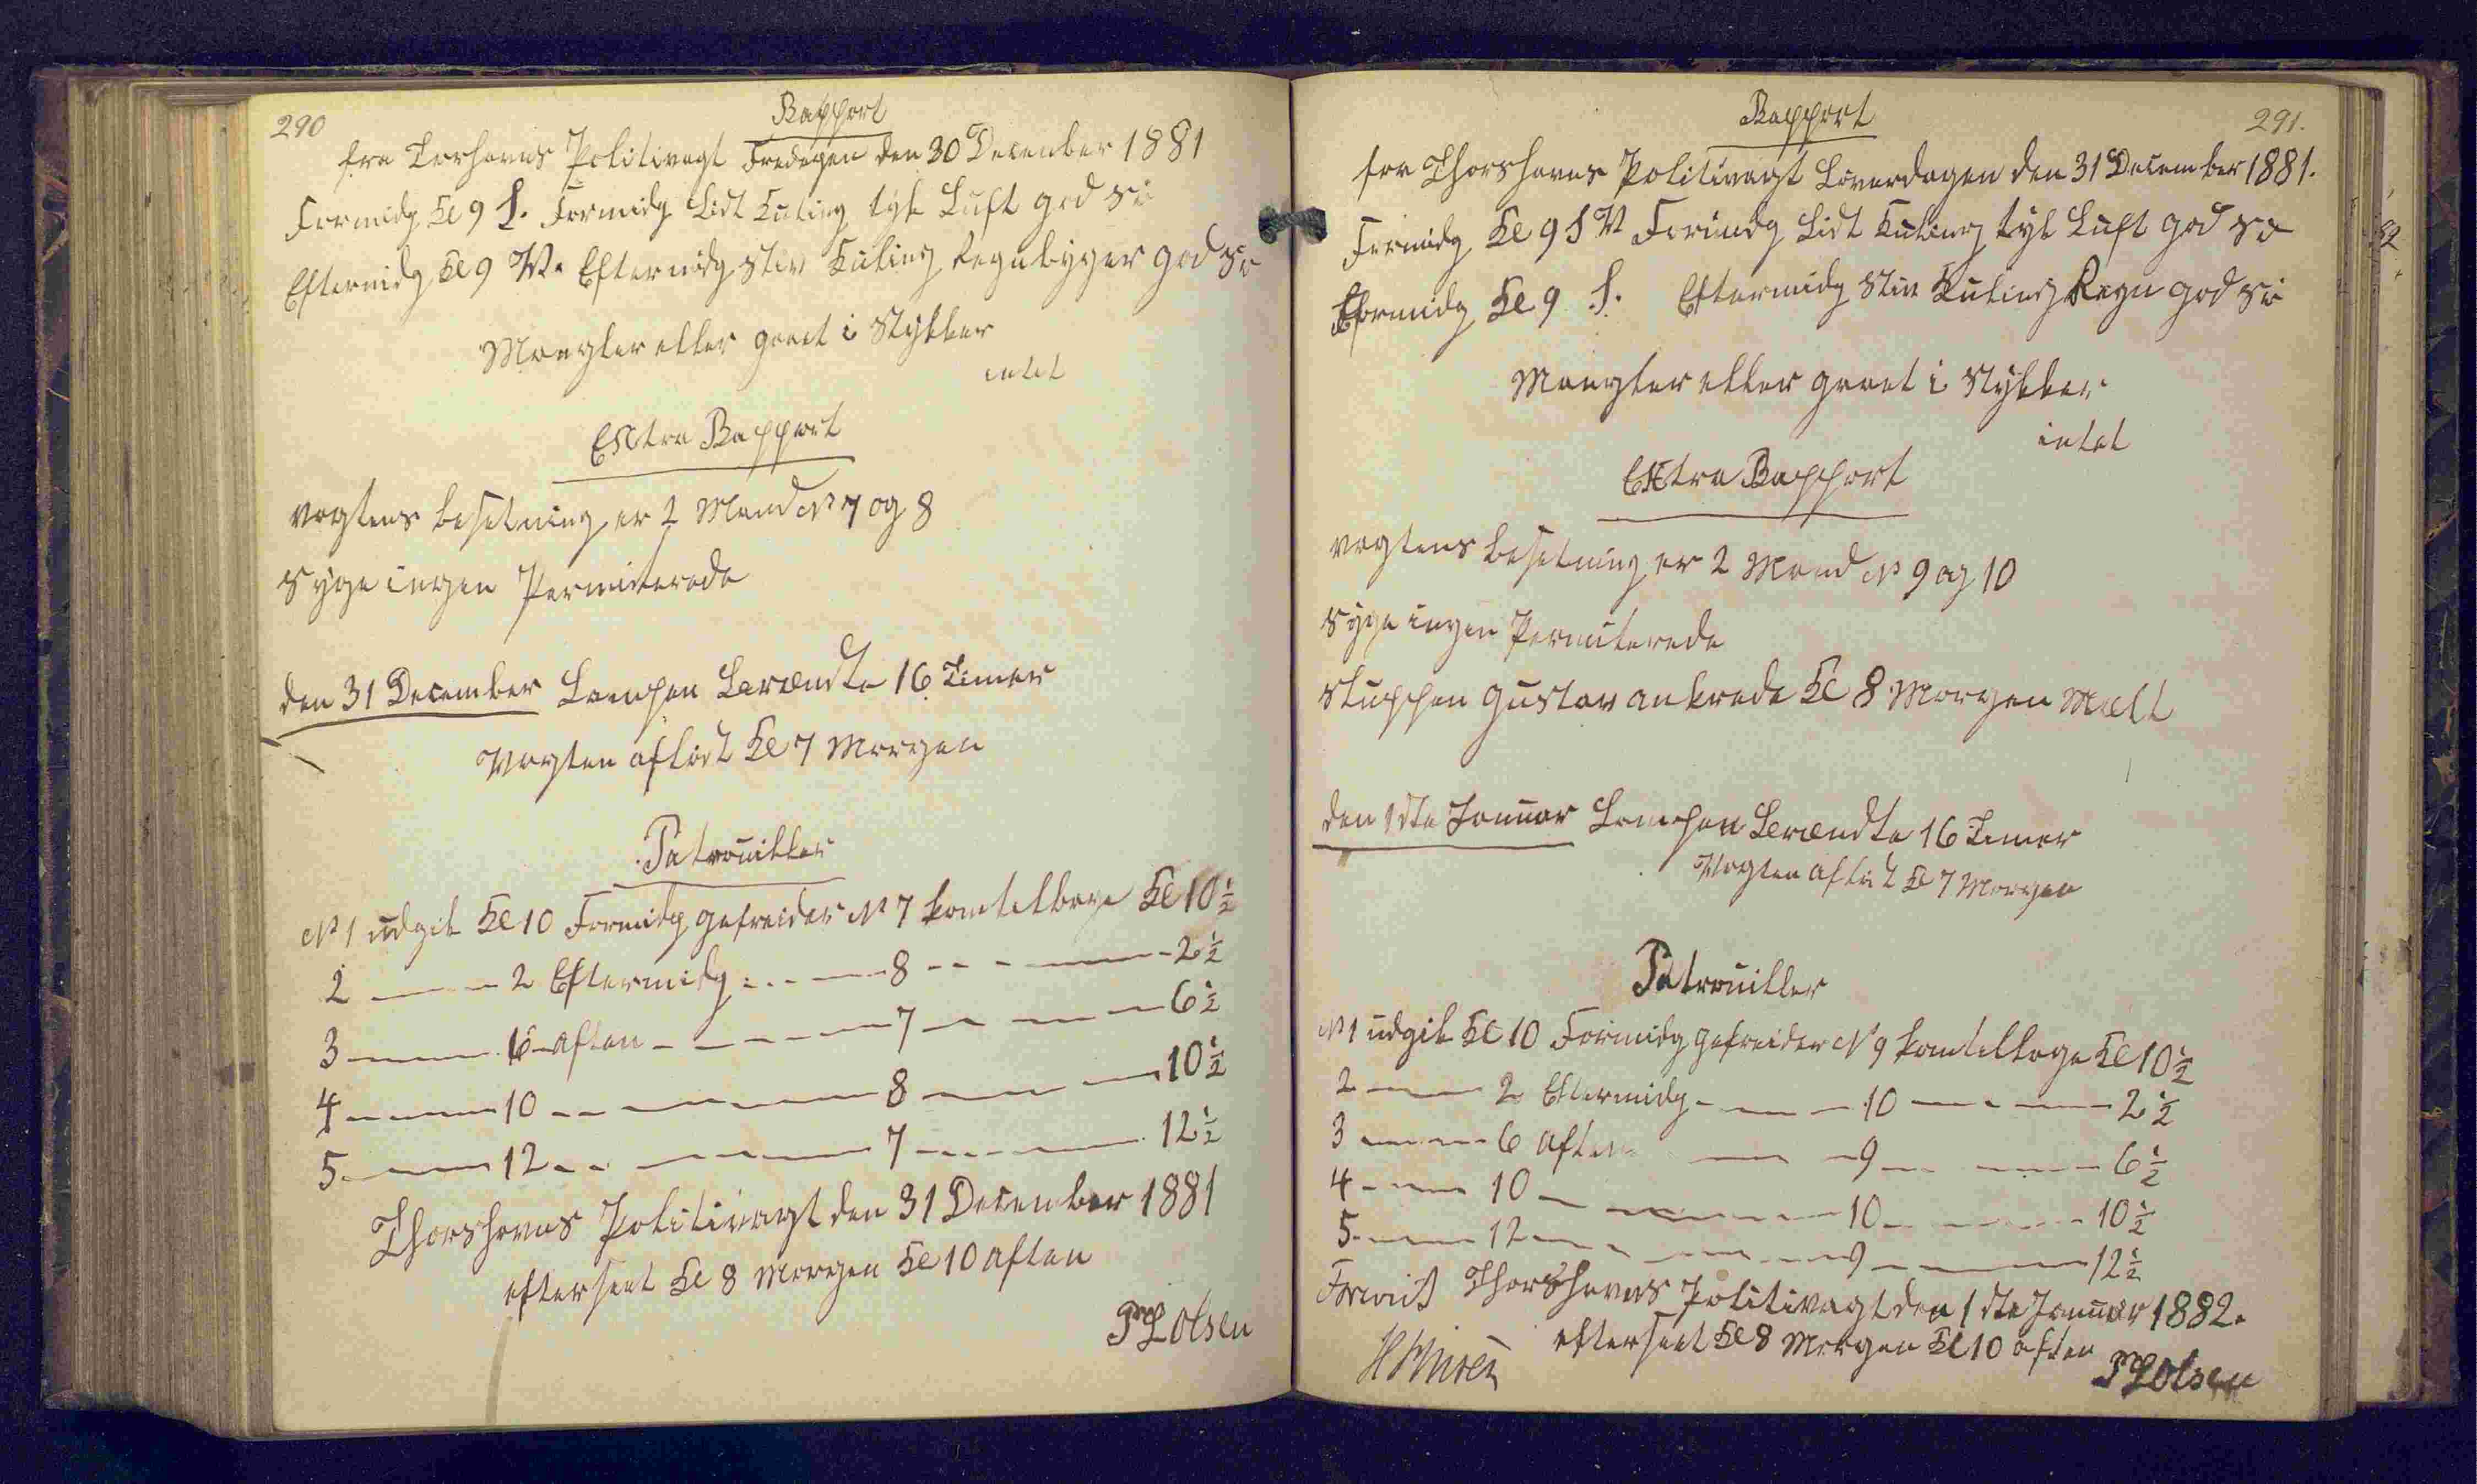 290
Rapport
fra Torhavns Politivagt Fredagen den 30 December 1881
Formidg Kl 9 S. Formidg Lidt Kuling tyk Luft god Sö
Eftermidg Kl 9 V. Eftermidg Stiv Kuling Regnbyger god Sö
Mangler eller gaaet i Stykker
intet
Extra Rapport
Vagtens besetning er 2 Mand No 7 og 8
Syge ingen Permiterede
den 31 December Lampen Berændte 16 Timer
Vagten aflöst Kl 7 Morgen
Patrouiller
No 1 udgik Kl 10 Formidg gefreider No 7 kom tilbage Kl 10 ½
2 — — 2 Eftermidg — — 8 — — — 2 ½
3 — — 6 Aften — — — 7 — — — 6 ½
4 — — 10 — — — 8 — — — 10 ½
5 — — 12 — — — 7 — — — 12 ½
Thorshavns Politivagt den 31 December 1881
efterseet Kl 8 Morgen Kl 10 Aften
Olsen
291.
Rapport
fra Thorshavns Politivagt Löverdagen den 31 December 1881.
Formidg Kl 9 S V Formidg Lidt Kuling tyk Luft god Sö
Eformidg Kl 9 S. Eftermidg Stiv Kuling Regn god Sö
Mangler eller gaaet i Stykker
intet
Extra Rapport
Vagtens besetning er 2 Mand No 9 og 10
Syge ingen Permiterede
Sluppen Gustav ankrede Kl 8 Morgen
den 1ste Januar Lampen Berændte 16 Timer
Vagten aflöst Kl 7 Morgen
Patrouiller
No 1 udgik Kl 10 Formidg gefreider No 9 kom tilbage Kl 10 ½
2 — — 2 Eftermidg — — 10 — — — 2 ½
3 — — 6 Aften — — 9 — — — 6 ½
4 — — 10 — — — 10 — — — 10 ½
5 — — 12 — — — 9 — — — 12 ½
Thorshavns Politivagt den 1ste Januar 1882.
efterseet Kl 8 Morgen Kl 10 Aften
Olsen